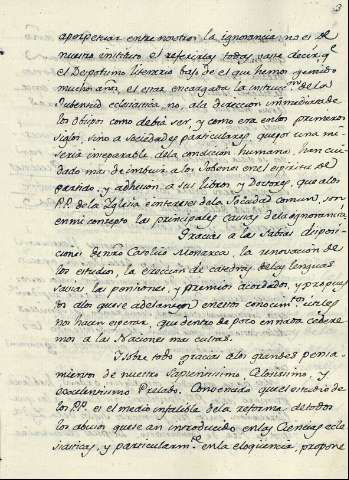 3
a perpetuar entre nosotros la ignorancia no es de
nuestro instituto el referirlas todas, vaste decir, q.e
el Despotismo literario bajo de el que hemos gemido
muchos años, el estar encargada la instrucc.on de la
Jubentud eclesiastica, no a la direccion inmediata de
los obispos como debia ser y como era en los primeros
siglos, sino a Sociedades particulares, que por una mi-
seria inseparable de la condicion humana han cui-
dado mas de imbuir a los Jobenes en el espiritu de
partido, y adhesion a sus libros, y Doctores, que a los
P.P. de la Yglesia e intereses de la Sociedad comun, son
en mi concepto las principales causas de la ignorancia,
Gracias a las Sabias disposi-
ciones de nro Catolico Monarca, la renovacion de
los estudios, la ereccion de catedras de las lenguas
savias las pensiones, y premios acordados, y propues-
tos a los que se adelanten en estos conocim.tos utiles
nos hacen esperar, que dentro de poco en nada cedere-
mos a las Naciones mas cultas.
Y sobre todo gracias a los grandes pensa-
mientos de nuestro Sapientissimo, Celosisimo, y
excelentisimo Prelado. Convencido que el estudio de
los PP. es el medio infalible de la reforma de todos
los abusos que se an introducido en las Ciencias ecle
siasticas, y particularm.te en la eloquencia, propone